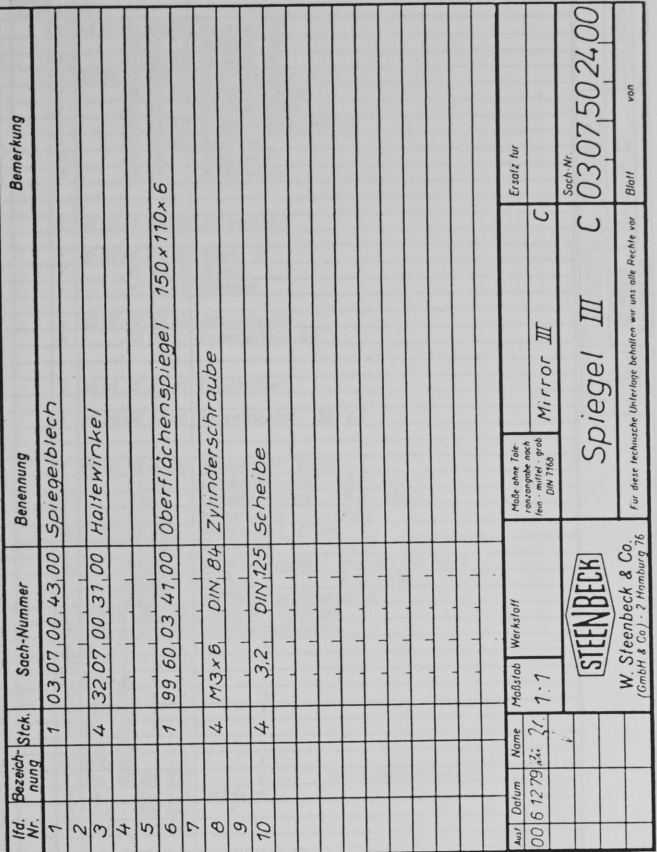 lfd. Nr. Bezeich-nung Stck. Sach-Nummer Benennung Bemerkung
1 1 03,07,00,43,00 Spiegelblech
2
3 4 32,07,00,31,00 Haltewinkel
4
5
6 1 99,60,03,41,00 Oberflächenspiegel 150x110x6
7
8 4 M3x6 DIN 84 Zylinderschraube
9
10 4 3,2 DIN 125 Scheibe
Ausf Datum Name Maßstab Werkstoff
Maße ohne Tole-
ranzangabe nach
fein - mittel - grob
DIN 7168
Ersatz für
00 6 12 79 1:1 Mirror III C
STEENBECK
W. Steenbeck & Co.
(GmbH & Co) - 2 Hamburg 76
Spiegel III
Sach-Nr.
C 03 07,50 24,00
Für diese technische Unterlage behalten wir uns alle Rechte vor
Blatt von